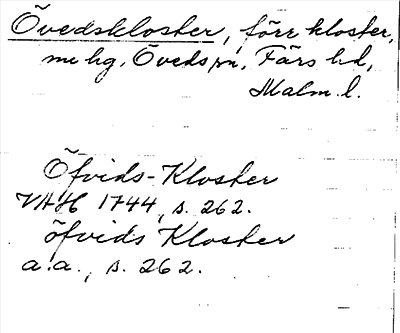 Övedskloster, förr kloster,
nu hg, Öveds sn, Färs hd,
Malm. l.
Öfvids-Kloster
VAH 1744, s. 262.
öfvids Kloster
a.a., s. 262.